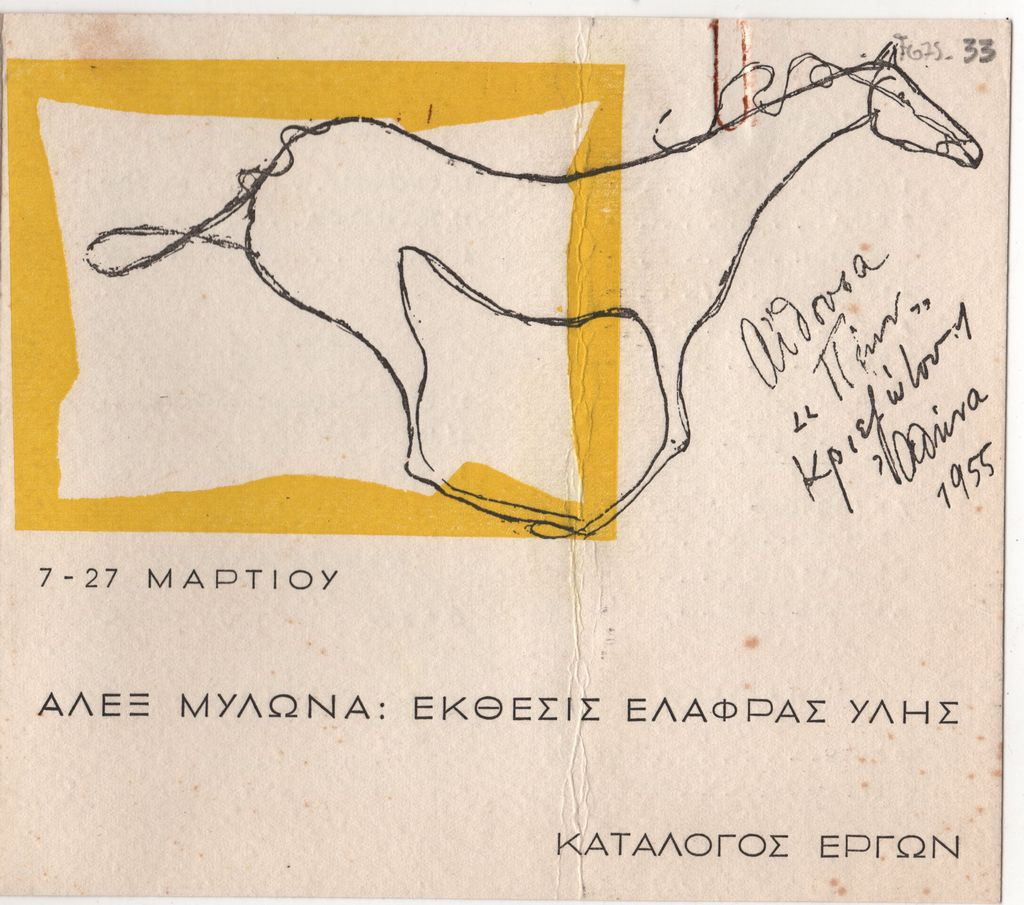 33
Αἴθουσα
«Πήν»
Κριεζώτου 1
Ἀθήνα
1955
7-27 ΜΑΡΤΙΟΥ
ΑΛΕΞ ΜΥΛΩΝΑ: ΕΚΘΕΣΙΣ ΕΛΑΦΡΑΣ ΥΛΗΣ
ΚΑΤΑΛΟΓΟΣ ΕΡΓΩΝ